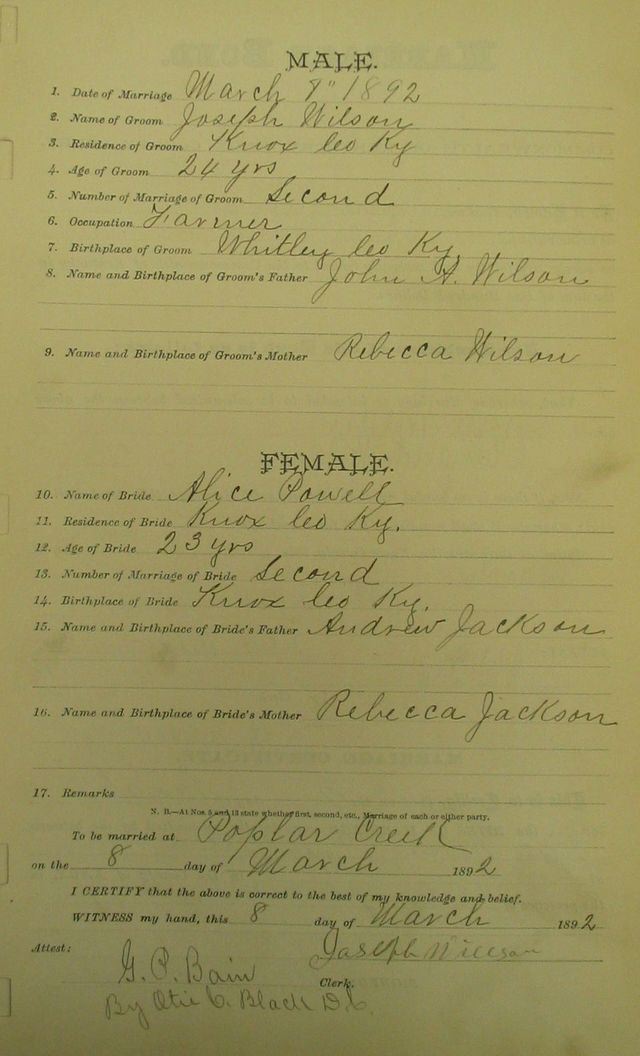 MALE.
1. Date of Marriage March 1892
2. Name of Groom Joseph Wilson
3. Residence of Groom Knox Co Ky
4. Age of Groom 24 yrs
5. Number of Marriage of Groom Second
6. Occupation Farmer
7. Birthplace of Groom Whitley Co Ky.
8. Name and Birthplace of Groom's Father John A. Wilson
9. Name and Birthplace of Groom's Mother Rebecca Wilson
FEMALE.
10. Name of Bride Alice Powell
11. Residence of Bride Knox Co Ky.
12. Age of Bride 23 yrs
13. Number of Marriage of Bride Second
14. Birthplace of Bride Knox Co Ky.
15. Name and Birthplace of Bride's Father Andrew Jackson
16. Name and Birthplace of Bride's Mother Rebecca Jackson
17. Remarks
N. B.—At Nos. 5 and 13 state whether first, second, etc., Marriage of each or either party.
To be married at Poplar Creek
on the 8 day of March 1892
I CERTIFY that the above is correct to the best of my knowledge and belief.
WITNESS my hand, this 8 day of March 1892
Joseph Willson
Attest:
G. P. Bain Clerk.
By Otis C. Black D.C.